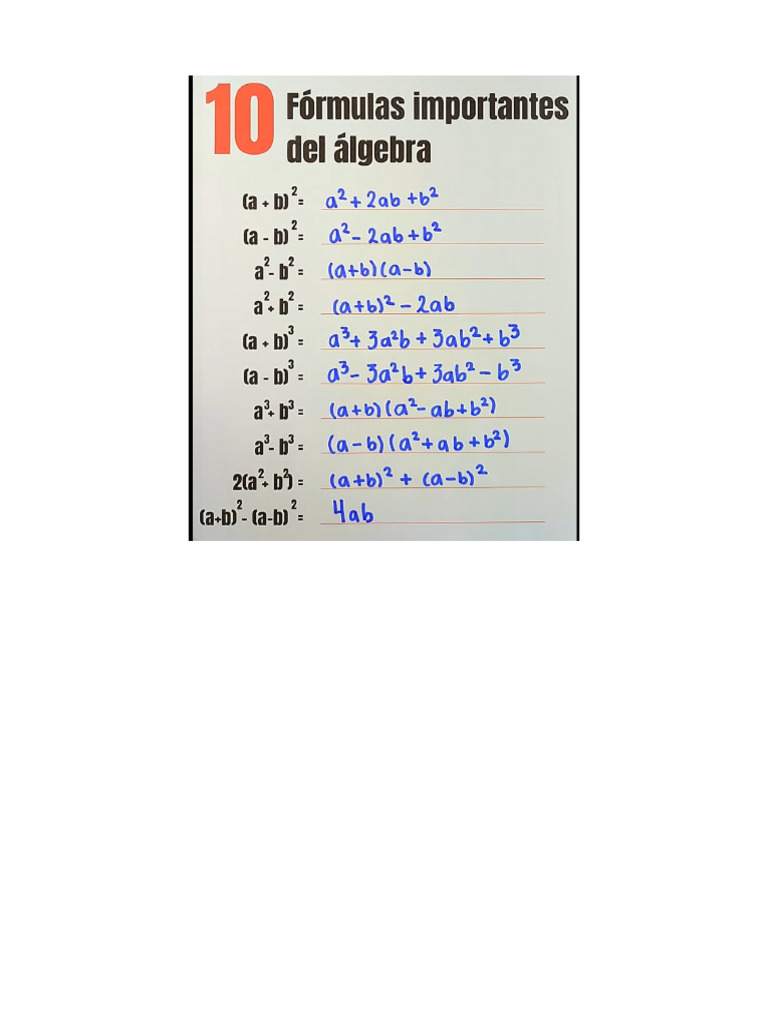 10 Fórmulas importantes
del álgebra
(a + b)² = a² + 2ab + b²
(a - b)² = a² - 2ab + b²
a² - b² = (a+b)(a-b)
a² + b² = (a+b)² - 2ab
(a + b)³ = a³ + 3a²b + 3ab² + b³
(a - b)³ = a³ - 3a²b + 3ab² - b³
a³ + b³ = (a+b)(a² - ab + b²)
a³ - b³ = (a-b)(a² + ab + b²)
2(a² + b²) = (a+b)² + (a-b)²
(a+b)² - (a-b)² = 4ab